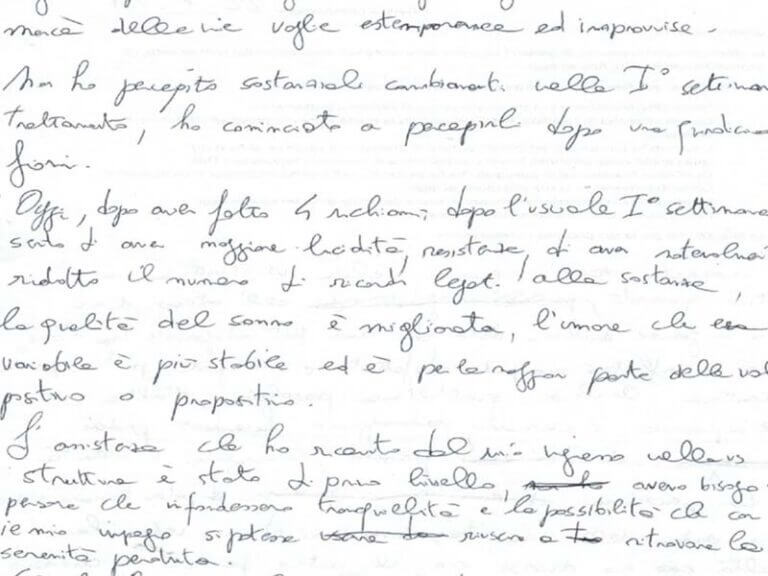 delle mie voglie estemporanee ed improvvise.
Non ho percepito sostanziali cambiamenti nella I° settiman
trattamento, ho cominciato a percepirli dopo una quindicina
giorni.
Oggi, dopo aver fatto 4 richiami dopo l'usuale I° settimana
sento di aver maggiore lucidità, resistenza, di aver notevolmen
ridotto il numero di ricordi legati alla sostanza,
la qualità del sonno è migliorata, l'umore che era
variabile è più stabile ed è per la maggior parte delle vol
positivo o propositivo.
L'assistenza che ho ricevuto dal mio ingresso nella vs
struttura è stata di primo livello, avevo bisogno
persone che infondessero tranquillità e la possibilità che con
il mio impegno si potesse riuscire a ritrovare la
serenità perduta.